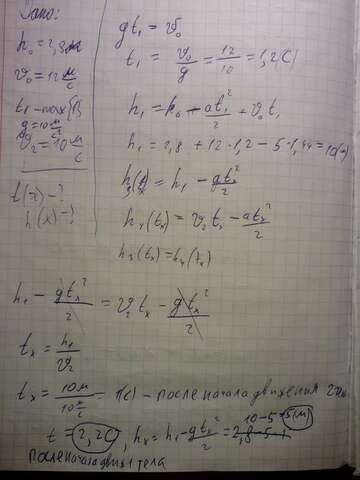 Дано:
h₀ = 2,8м
v₀ = 12 м/с
t₁ - max(h)
g = 10 м/с²
v₂ = 10 м/с
t(x) - ?
h(x) - ?
gt₁ = v₀
t₁ = v₀/g = 12/10 = 1,2(с)
h₁ = h₀ - at₁²/2 + v₀t₁
h₁ = 2,8 + 12·1,2 - 5·1,44 = 10(м)
h₃(tₓ) = h₁ - gtₓ²/2
h₄(tₓ) = v₂tₓ - atₓ²/2
h₃(tₓ) = h₄(tₓ)
h₁ - gtₓ²/2 = v₂tₓ - gtₓ²/2
tₓ = h₁/v₂
tₓ = 10м/10м/с = 1(с) - после начала движения 2 тела
t = 2,2с, hₓ = h₁ - gtₓ²/2 = 10-5=5(м)
после начала движ 1 тела